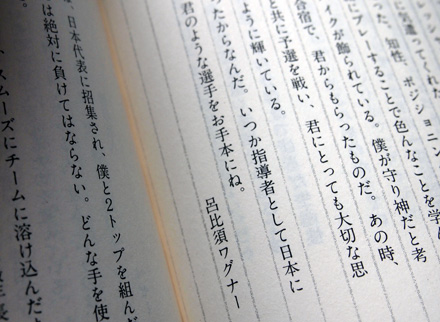 に気遣ってくれた
った。知性、ポジショニン
にプレーすることで色んなことを学ん
イクが飾られている。僕が守り神だと考
合宿で、君からもらったものだ。あの時、
と共に予選を戦い、君にとっても大切な思
ように輝いている。
ったからなんだ。いつか指導者として日本に
君のような選手をお手本にね。
呂比須ワグナー
、日本代表に招集され、僕と2トップを組んだ
は絶対に負けてはならない。どんな手を使
スムーズにチームに溶け込んだ